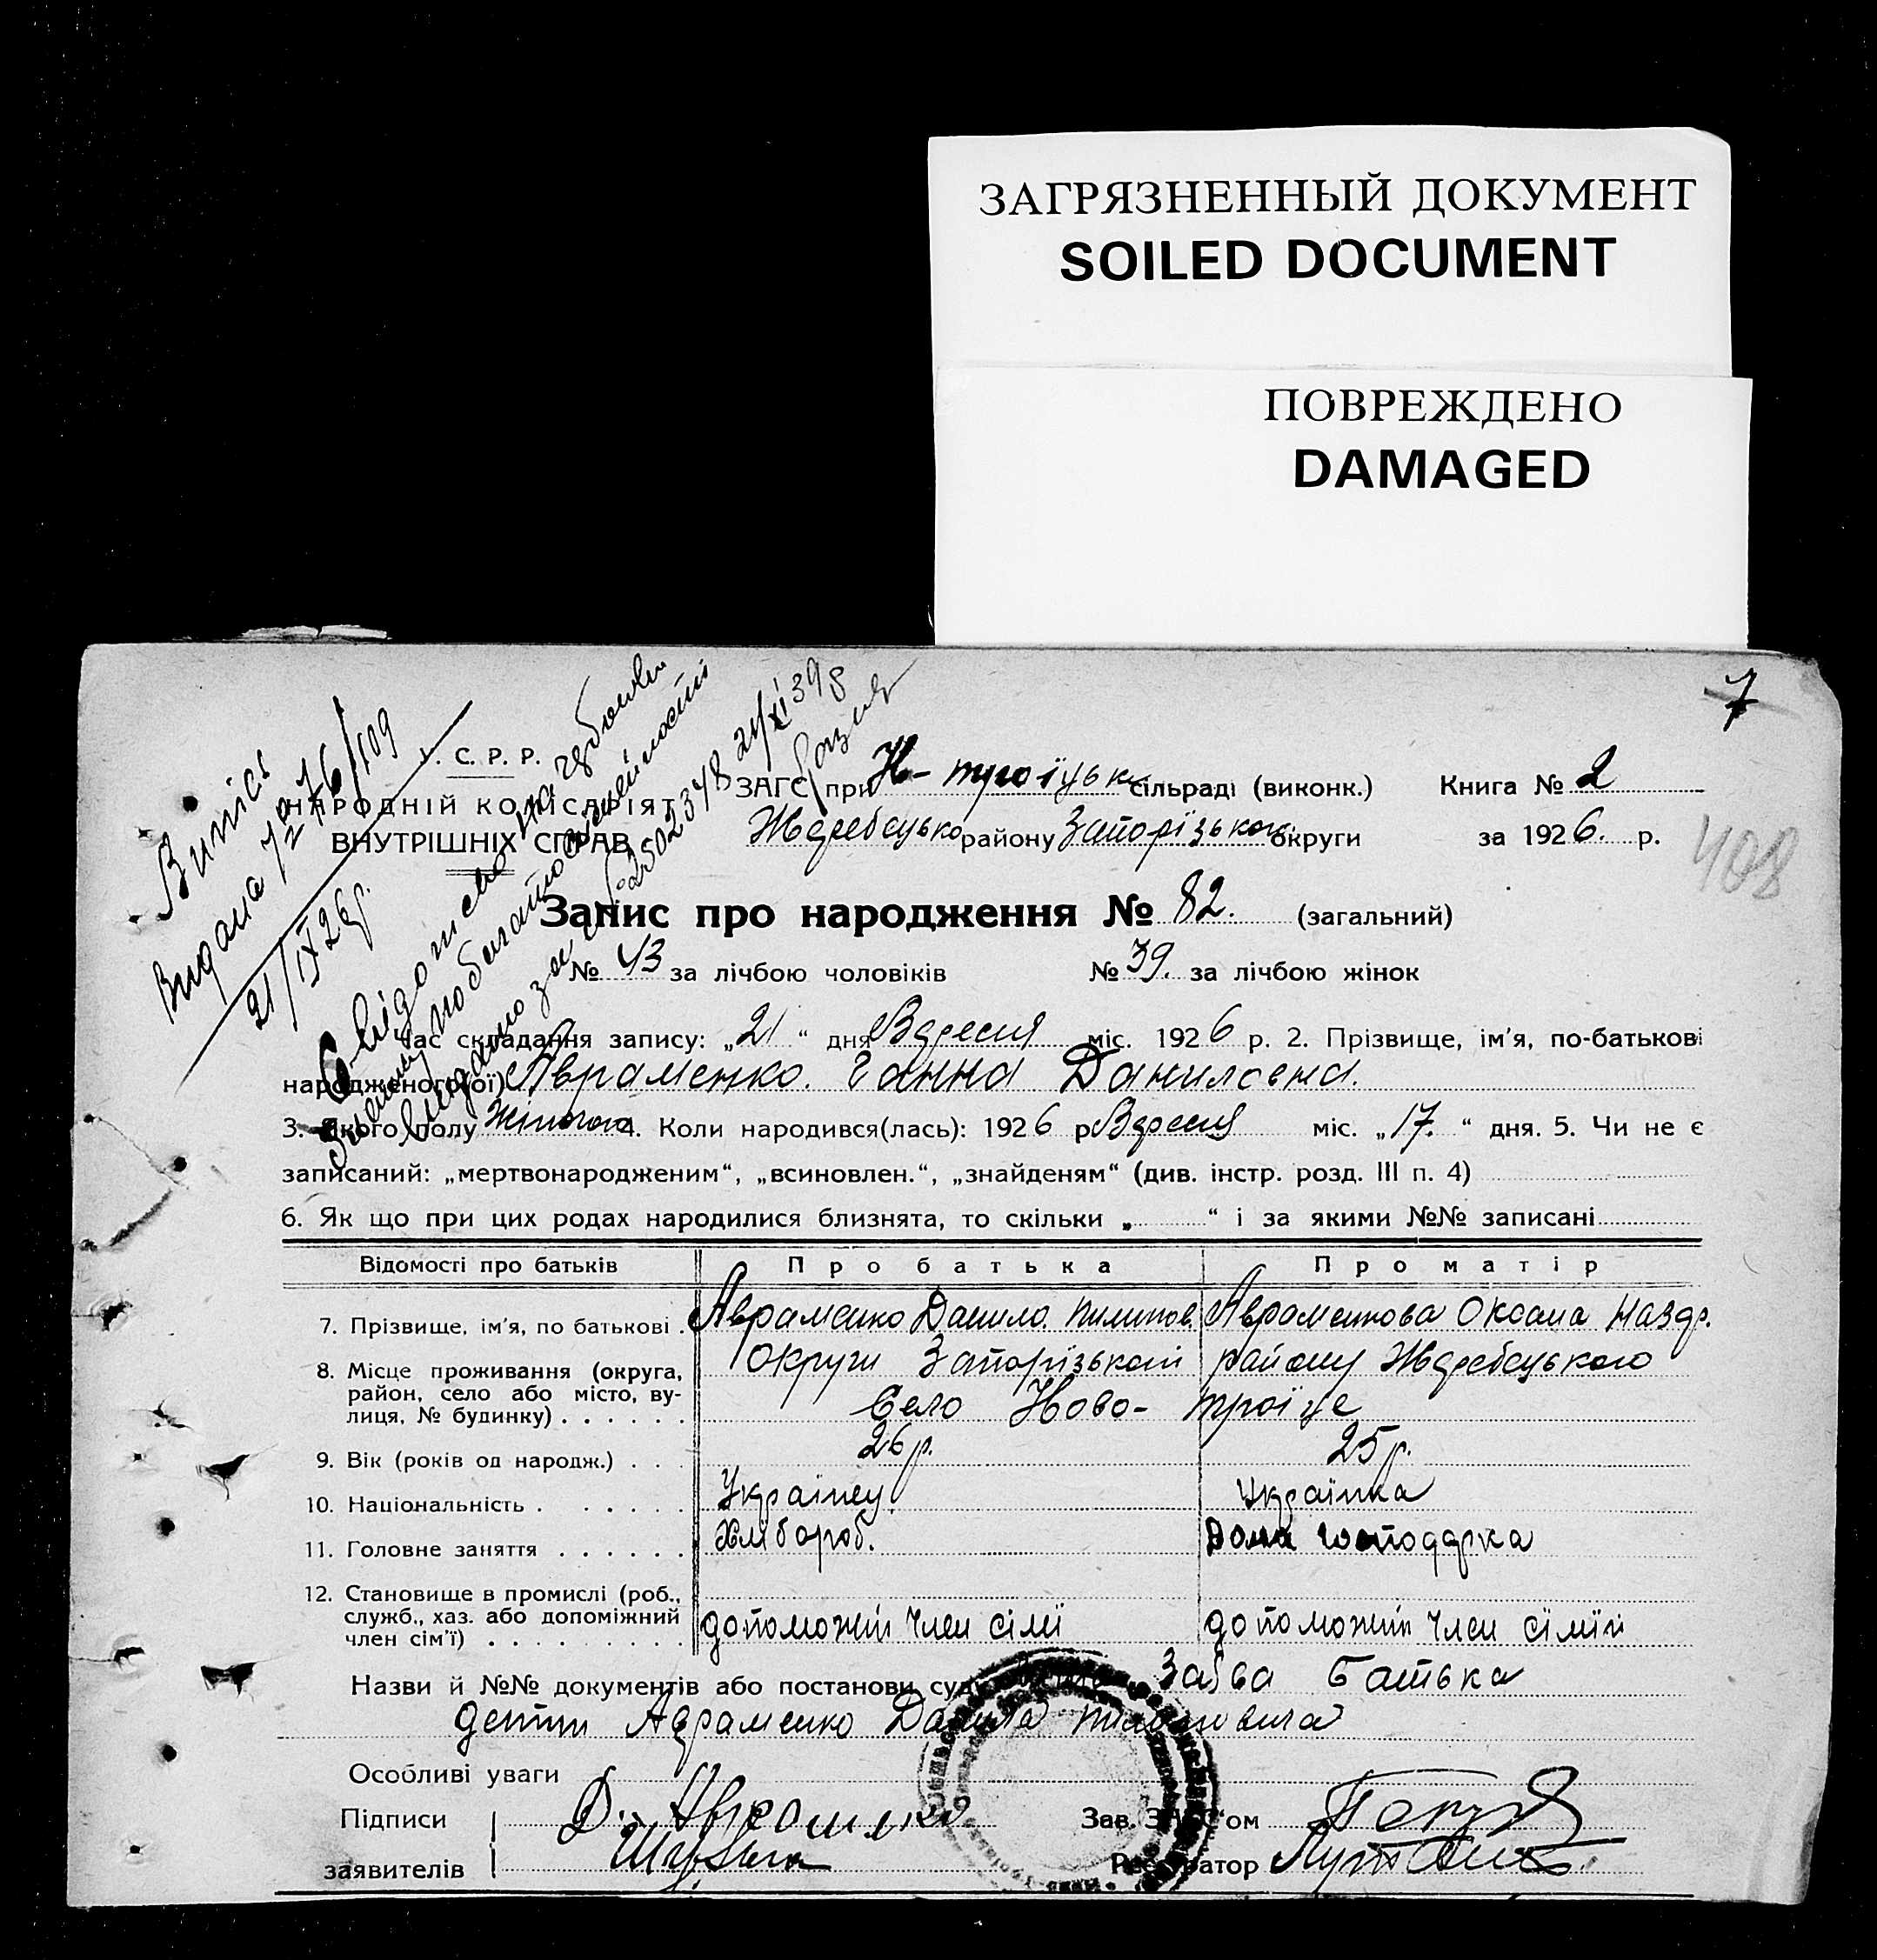 ЗАГРЯЗНЕННЫЙ ДОКУМЕНТ
SOILED DOCUMENT
ПОВРЕЖДЕНО
DAMAGED
7
408
Витяг
Видана
21/IX 26 р.
2502348 21/XI 39
У. С. Р. Р.
НАРОДНІЙ КОМІСАРІЯТ
ВНУТРІШНІХ СПРАВ
ЗАГС при Н-троїцьк сільраді (виконк.) Книга № 2
Жеребецько району Запорізькой округи за 1926. р.
Запис про народження № 82. (загальний)
№ 43 за лічбою чоловіків № 39. за лічбою жінок
Час складання запису: „21“ дня Вересня міс. 1926 р. 2. Прізвище, ім'я, по-батькові
народженого(ої) Авраменко. Ганна Даниловна.
3. Якого полу Жіночого 4. Коли народився(лась): 1926 р Вересня міс. „17.“ дня. 5. Чи не є
записаний: „мертвонародженим“, „всиновлен.“, „знайденям“ (див. інстр. розд. III п. 4)
6. Як що при цих родах народилися близнята, то скільки „ “ і за якими №№ записані
Відомості про батьків Про батька Про матір
7. Прізвище, ім'я, по батькові . Авраменко Данило. Пилипов. Авраменкова Оксана Назар.
8. Місце проживання (округа, Округи Запорізькой району Жеребецького
район, село або місто, ву-
лиця, № будинку) . . . . . . Село Ново-троїце
9. Вік (років од народж.) . . . 26 р. 25 р.
10. Національність . . . . . . Українец Українка
11. Головне заняття . . . . . . Хлібороб. Дома господарка
12. Становище в промислі (роб.,
служб., хаз. або допоміжний
член сім'ї) . . . . . . . . . допоможній член сімї допоможній член сімїй
Назви й №№ документів або постанови суду Заява Батька
детин Авраменко Данила Пилиповича
Особливі уваги
Підписи Д. Авраменко Зав. ЗАГС'ом
заявителів Реєстратор